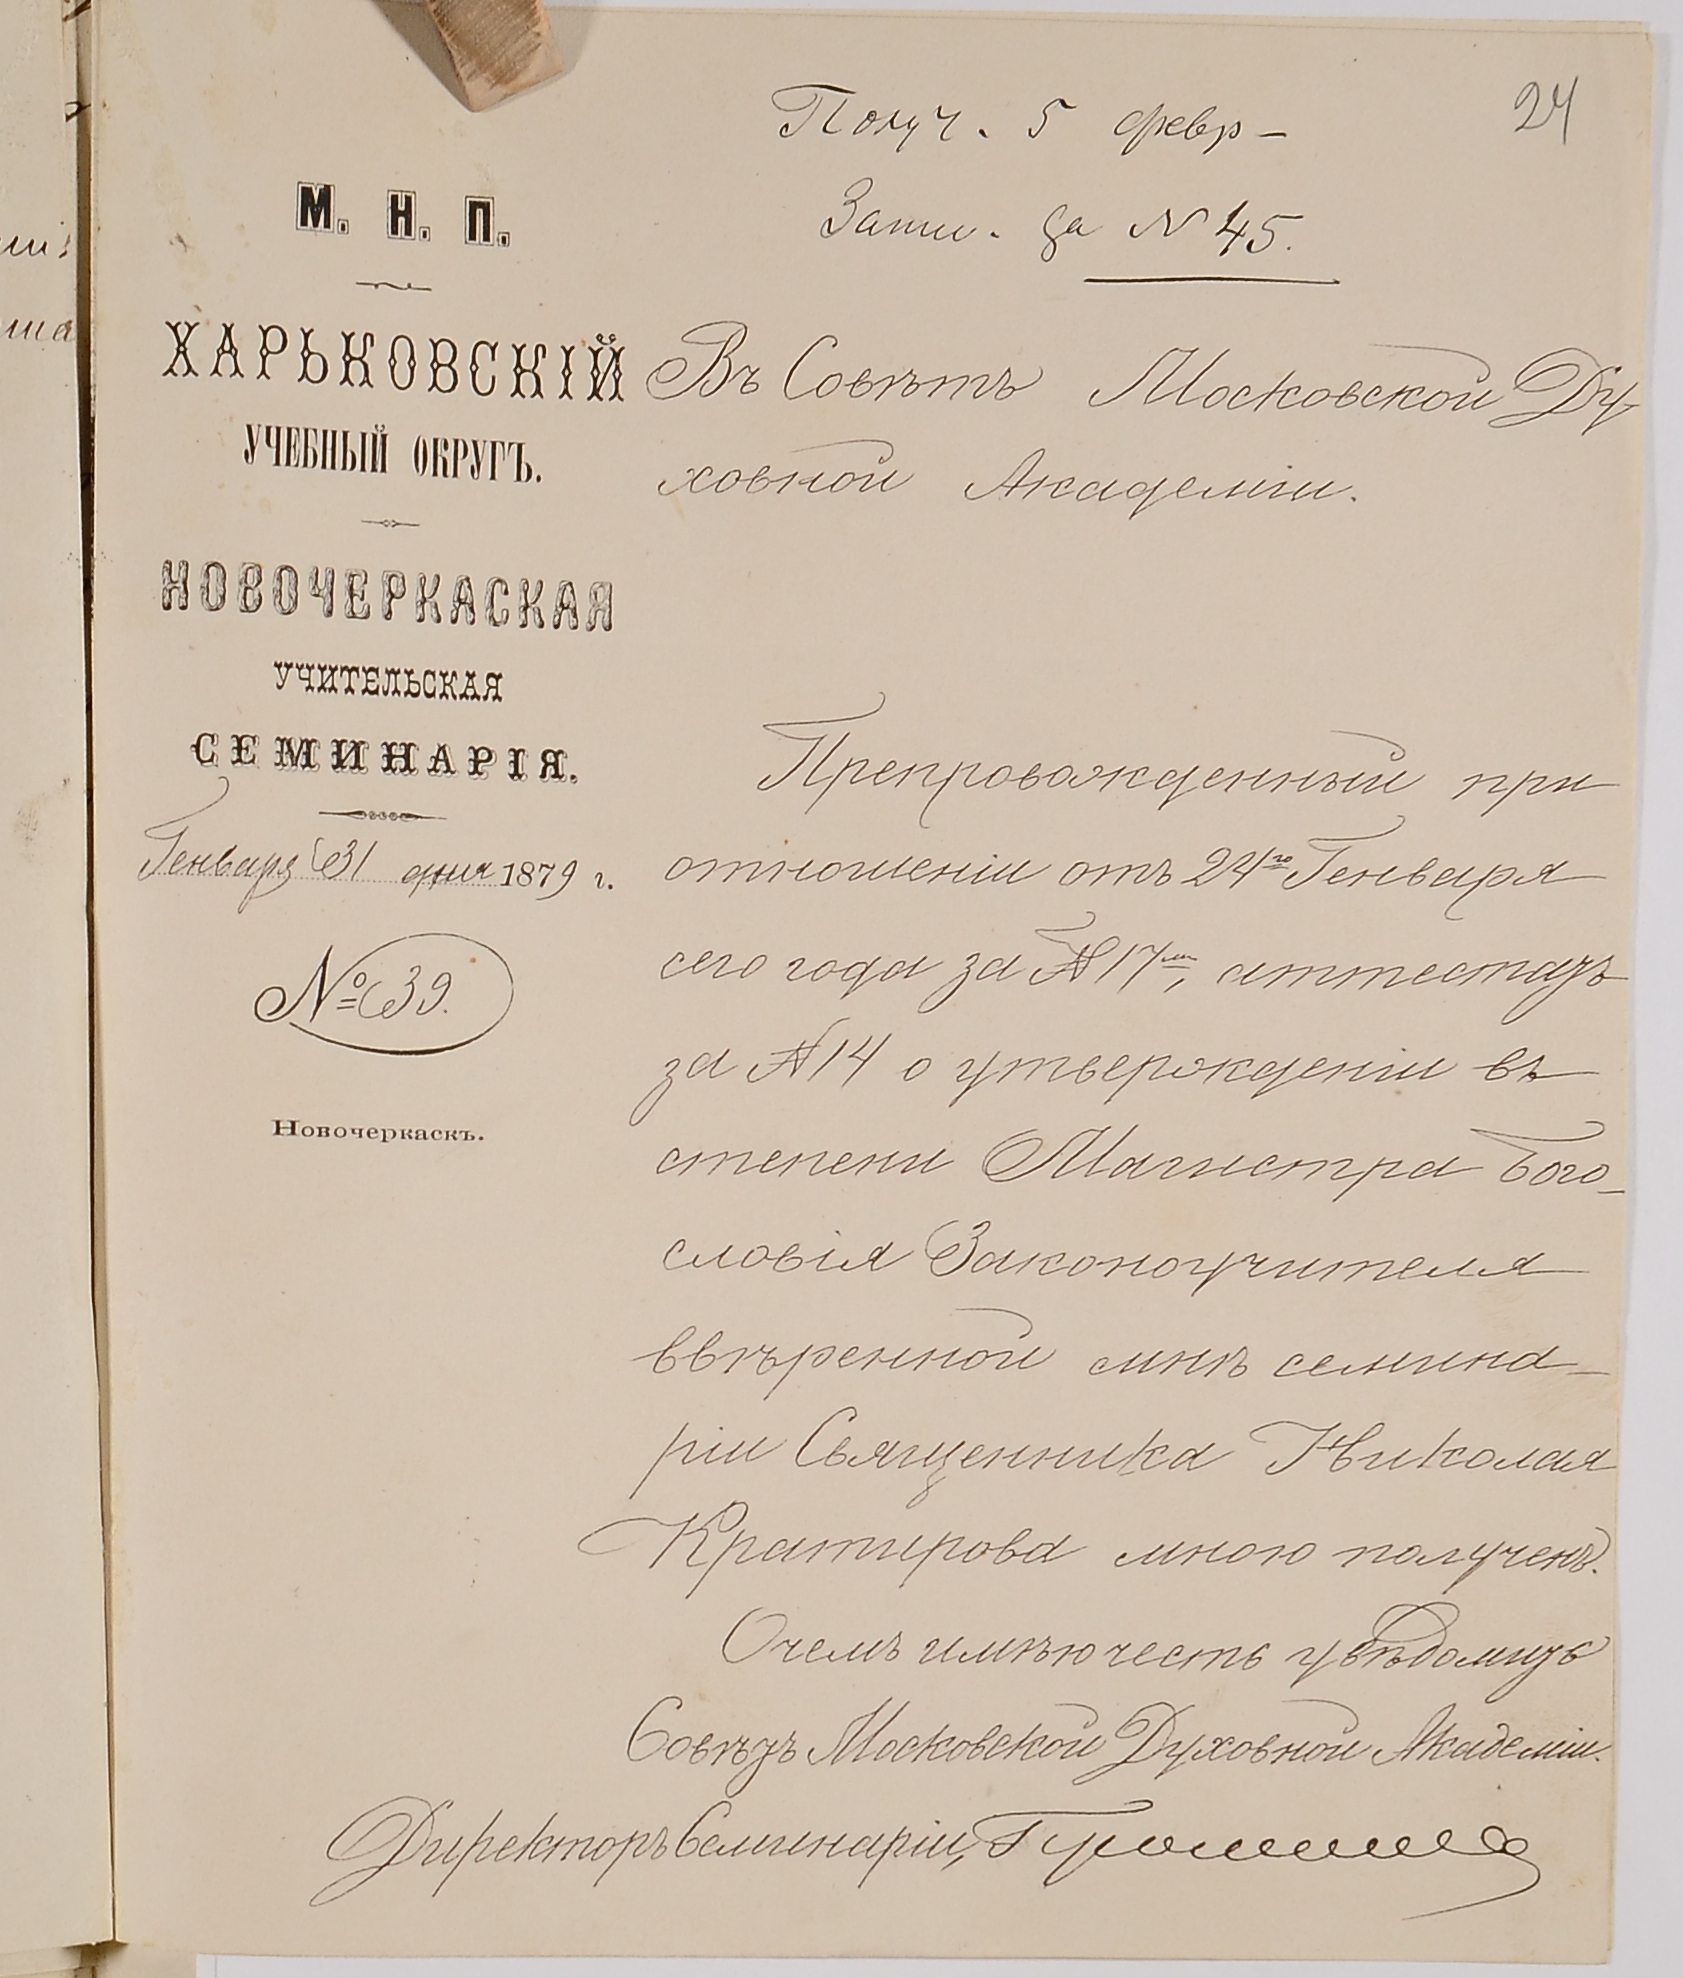 24
Получ. 5 февр
Запис. за № 45.
М. Н. П.
ХАРЬКОВСКІЙ
УЧЕБНЫЙ ОКРУГЪ.
НОВОЧЕРКАСКАЯ
УЧИТЕЛЬСКАЯ
СЕМИНАРІЯ.
Генваря 31 дня 1879 г.
№ 39.
Новочеркаскъ.
Въ Совѣтъ Московской Ду
ховной Академіи.
Препровожденный при
отношеніи отъ 24го Генваря
сего года за № 17мъ, аттестатъ
за № 14 о утвержденіи въ
степени Магистра Бого-
словія Законоучителя
ввѣренной мнѣ семина-
ріи Священника Николая
Кратирова мною полученъ.
О чемъ имѣю честь увѣдомить
Совѣтъ Московской Духовной Академіи.
Директоръ Семинаріи,